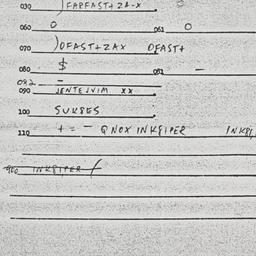 030 )FARFAST+ZA-X
060 0 061 0
070 )OFAST+ZAX OFAST+
080 $ 081 -
082 -
090 JENTEJVIM XX
100 SUKSES
110 += - QNOX INK8IPER INK8I